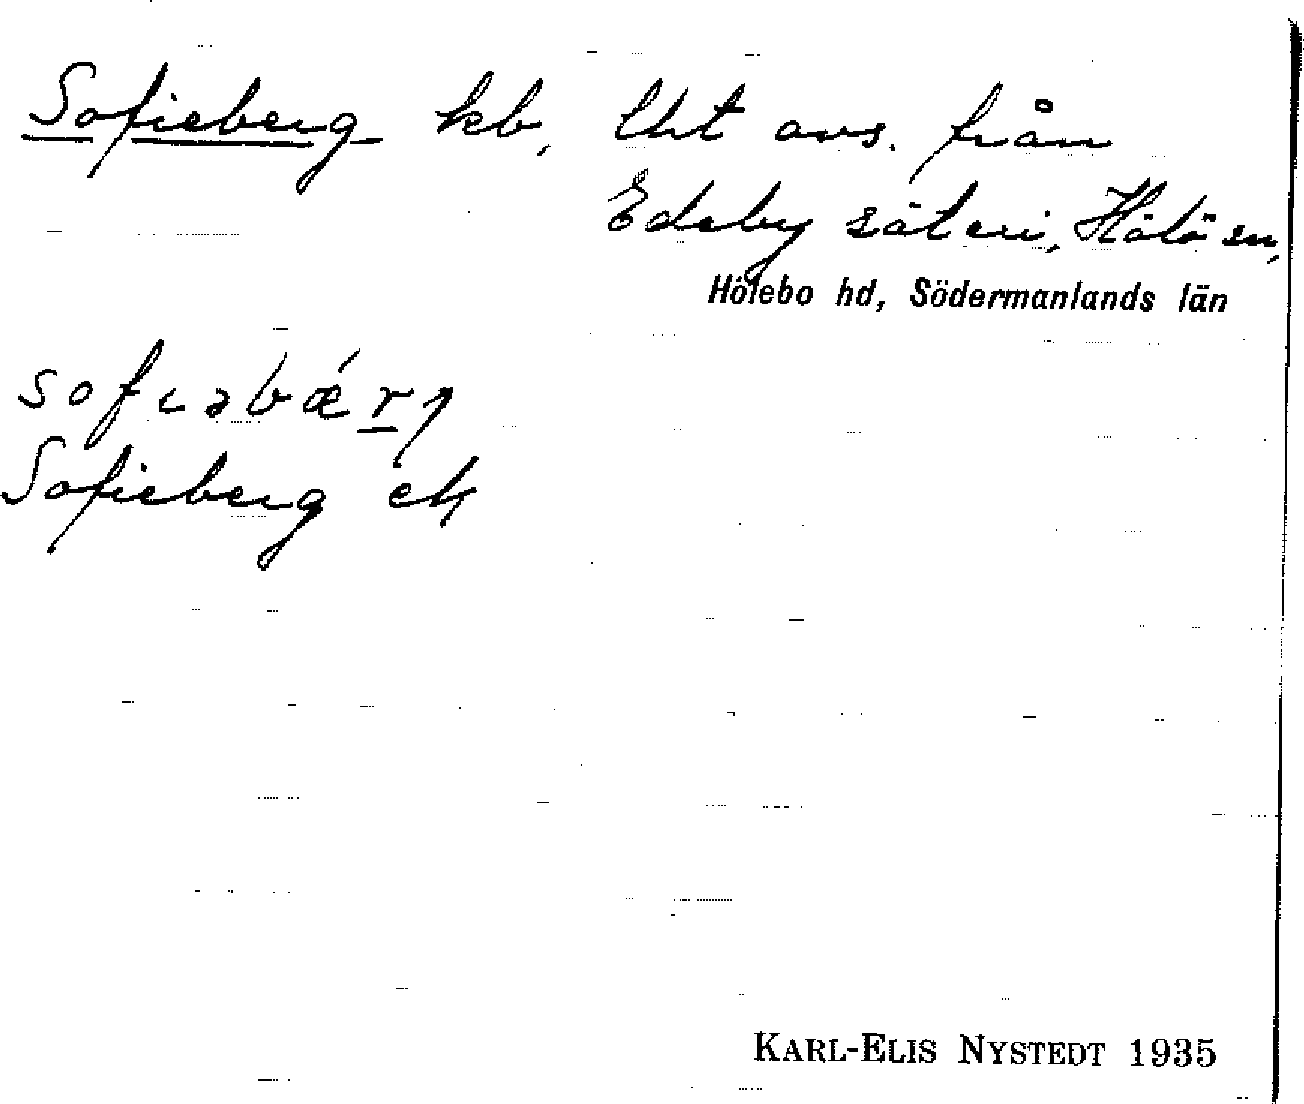 Sofieberg kb, lht avs. från
Edeby säteri, Hölö sn,
Hölebo hd, Södermanlands län
sofɩəbǽrg
Sofieberg ek
KARL-ELIS NYSTEDT 1935